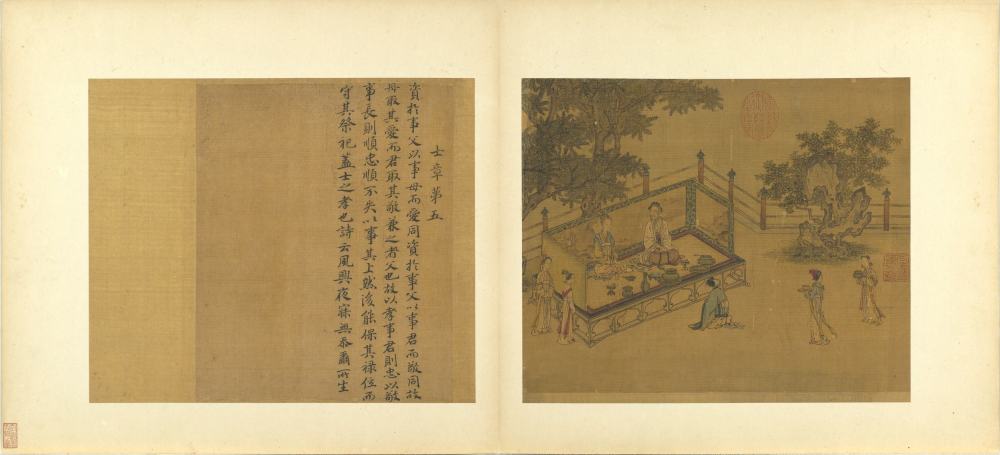 士章第五
資於事父以事母而愛同資於事父以事君而敬同故
母取其愛而君取其敬兼之者父也故以孝事君則忠以敬
事長則順忠順不失以事其上然後能保其祿位而
守其祭祀蓋士之孝也詩云夙興夜寐無忝爾所生